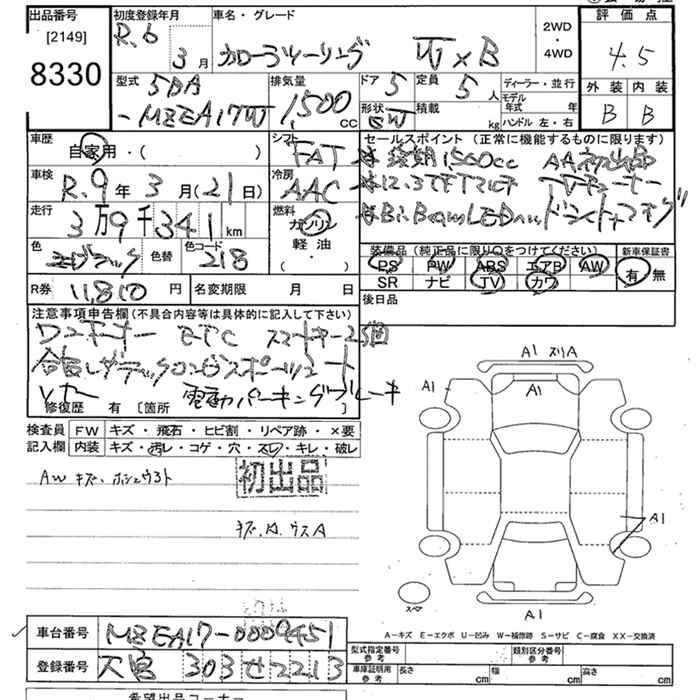 出品番号
[2149]
8330
初度登録年月
R.6
3月
車名・グレード
カローラツーリング W×B
2WD
・
4WD
評価点
4.5
外装 内装
B B
型式
5BA
-MZEA17W
排気量
1,500 cc
ドア
5
定員
5人
形状
SW
積載
kg
ディーラー・並行
モデル
年式 年
ハンドル 左・右
車歴
自家用・( )
シフト
FAT
セールスポイント (正常に機能するものに限ります)
車検
R.9年3月(21日)
冷房
AAC
走行
3万9千341km
燃料
ガソリン
軽油
( ・ )
色
色替
色コード
218
装備品 (純正品に限り○をつけてください)
PS PW ABS エアB AW
SR ナビ TV カワ
新車保証書
有 無
R券
11,810円
名変期限 月 日
後日品
注意事項申告欄(不具合内容等は具体的に記入して下さい)
ワンオーナー ETC スマートキー2個
合皮レザーテックコンビスポーツシート
電動パーキングブレーキ
修復歴 有 [箇所 ]
検査員
記入欄
FW キズ・飛石・ヒビ割・リペア跡・×要
内装 キズ・汚レ・コゲ・穴・スレ・キレ・破レ
AW キズ
初出品
A1
A1
A1
A1
A1
スペア
A-キズ E-エクボ U-凹み W-補修跡 S-サビ C-腐食 XX-交換済
車台番号
MZEA17-0009451
登録番号
大宮 303 せ 2213
型式指定番号
参考
類別区分番号
参考
車庫証明用
参考
長さ cm
幅 cm
高さ cm
希望出品コーナー